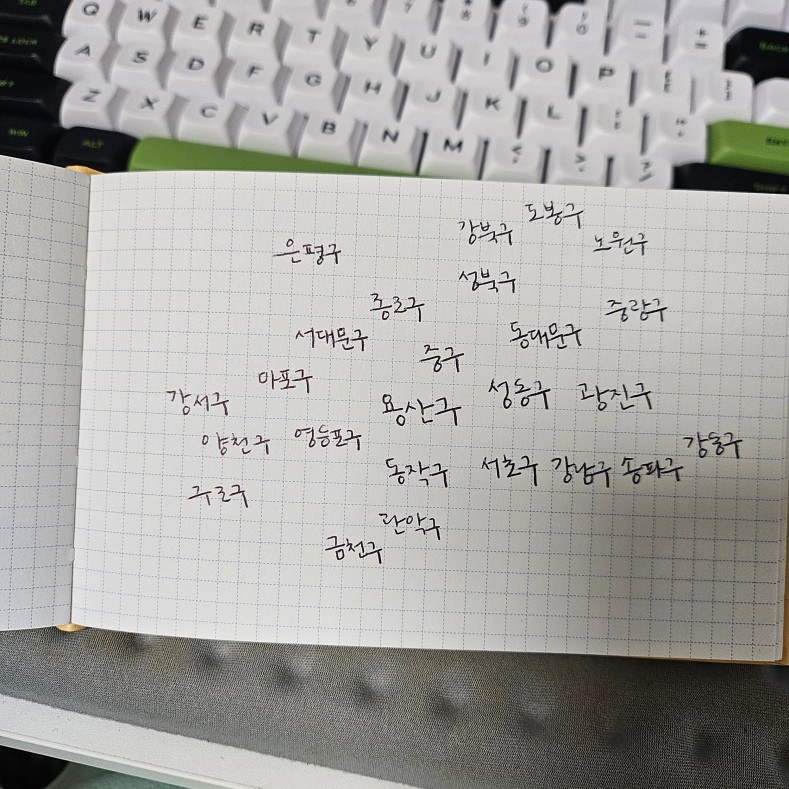 Q W E R T Y U I O P
A S D F G H J K L
Z X C V B N M
ALT
도봉구
강북구
노원구
은평구
성북구
종로구
중랑구
서대문구
동대문구
중구
마포구
강서구
용산구
성동구
광진구
양천구
영등포구
강동구
동작구
서초구
강남구
송파구
구로구
관악구
금천구